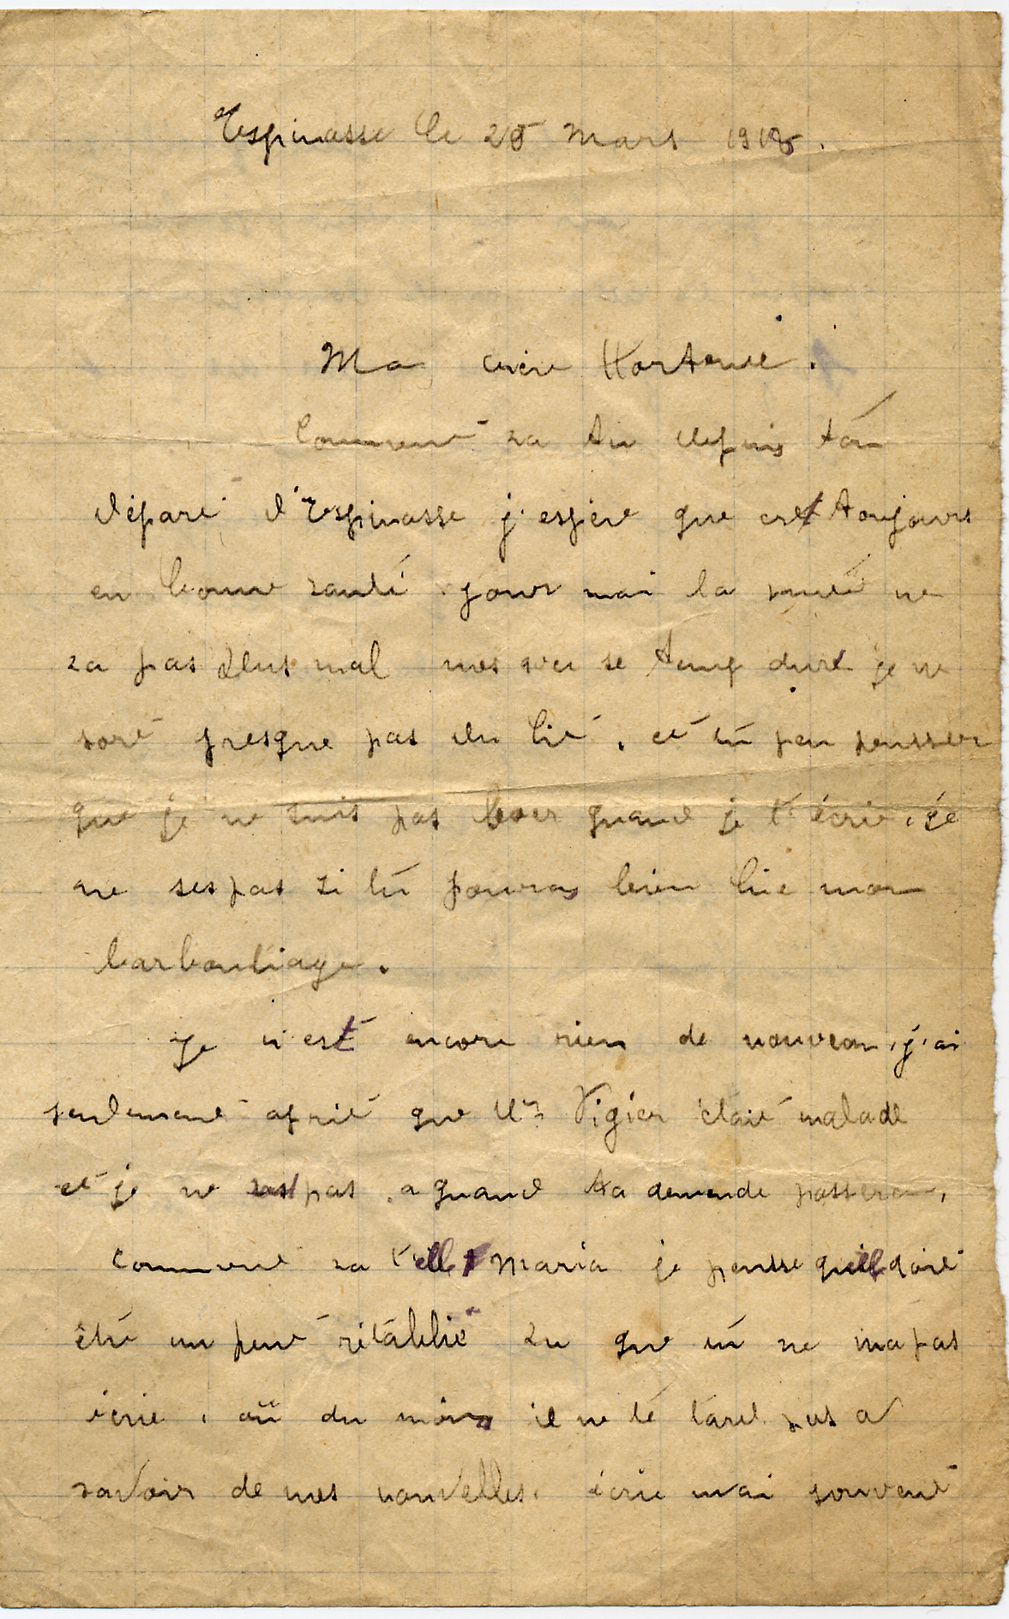 Espinasse le 25 mars 1918.
Ma chère Hortense.
Comment va tu depuis ton
départ d'Espinasse j'espère que est toujours
en bonne santé pour moi la santé ne
va pas plus mal mes avec se temp dure je ne
sort presque pas du lit. et tu peu pensser
que je ne suis pas lever quand je t'écrie, je
ne ses pas si tu pourras bien lire mon
barbouliage.
Je n'est encore rien de nouveau, j'ai
seulement aprit que Mr Vigier était malade
et je ne pas a quand ta demende passera,
comment va t'elle Maria je pensse quelle doit
être un peut rétablie vu que tu ne ma pas
écrie, où du moins il ne té tard pas a
savoir de mes nouvelles. écrie moi souvent